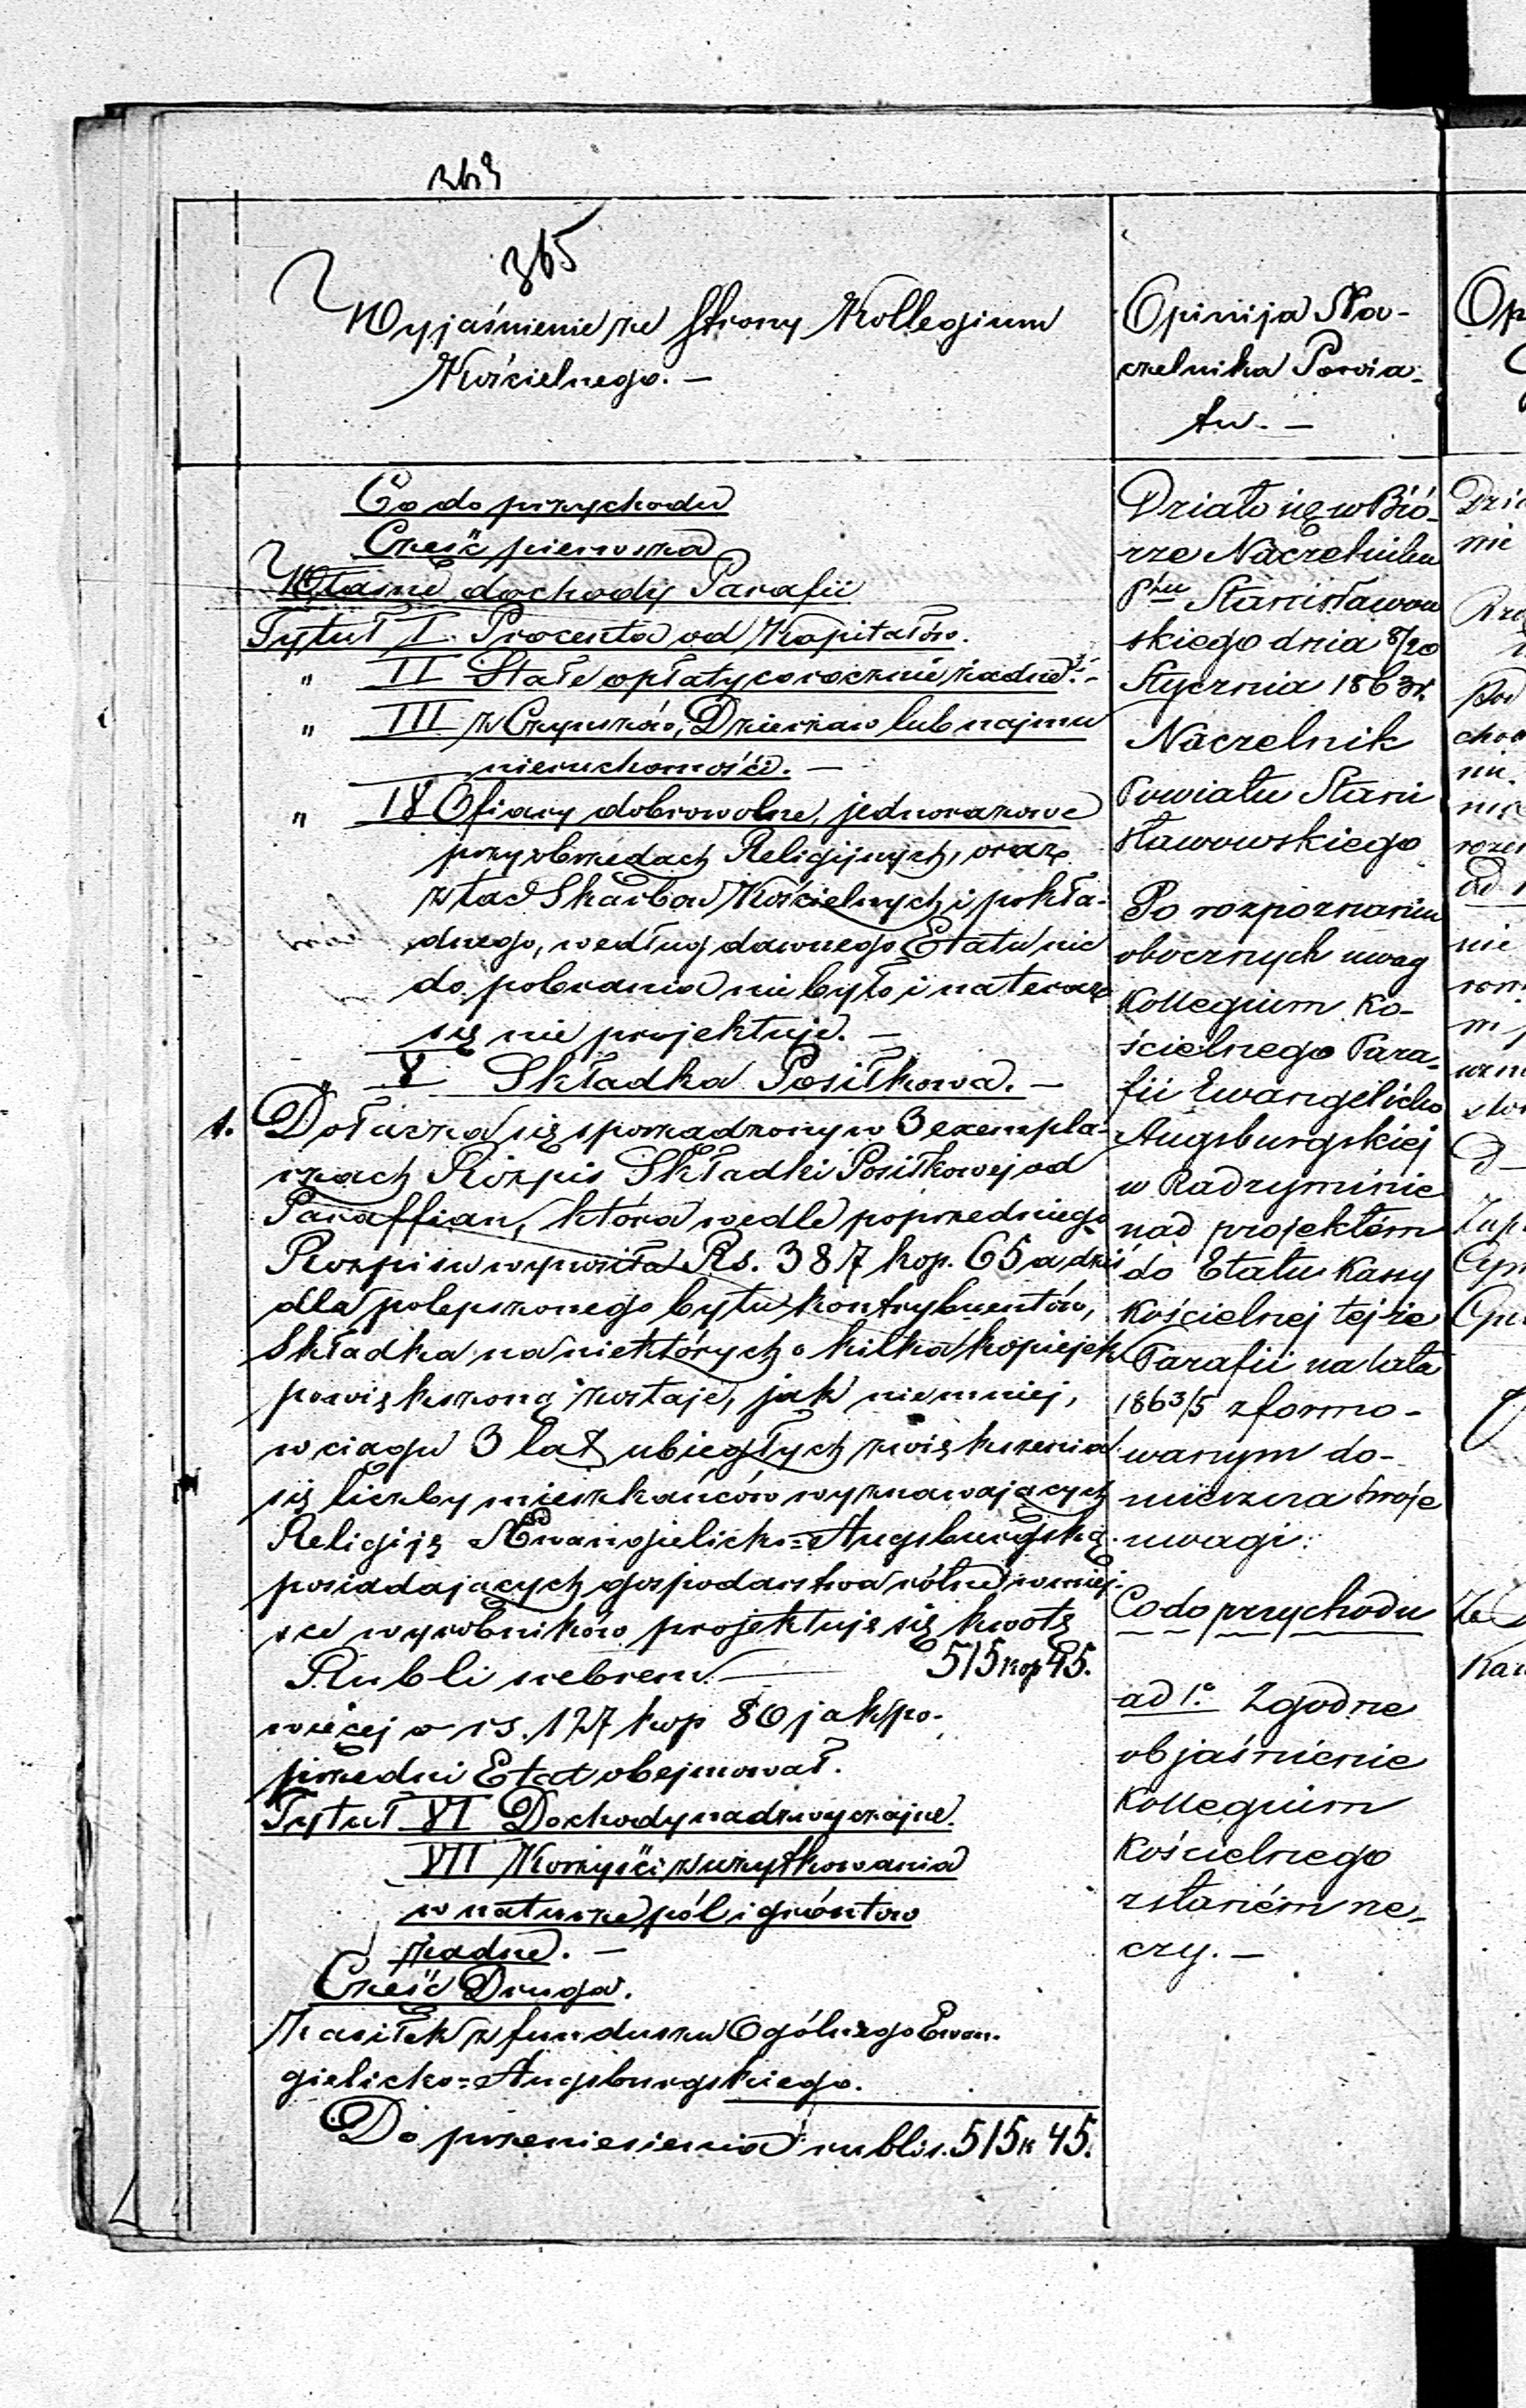 365
Wyjaśnienie ze Strony Kollegium
Kościelnego. —
Co do przychodu
Cześć pierwsza
Własne dochody Parafii
Tytuł I. Procenta od Kapitałów.
" II Stałe opłaty corocznie żadne. -
" III z Czynszów, Dzierżaw lub najmu
nieruchomości. —
" IV Ofiary dobrowolne, jednorazowe
przy obrzędach Religijnych, oraz
z tac Skarbon Kościelnych i pokła-
dnego, według dawnego Etatu nic
do pobrania nie było i na teraz
się nie projektuje. —
" V Składka Posiłkowa. —
1. Dołącza się sporządzony w 3 exempla-
rzach Rozpis Składki Posiłkowej od
Paraffian, która wedle poprzedniego
Rozpisu wynosiła Rs. 387 kop. 65 a dziś
dla polepszonego bytu kontrybuentów,
Składka na niektórych o kilka kopiejek
powiększoną zostaje, jak niemniej,
w ciągu 3 lat ubiegłych zwiększenia
się liczby mieszkańców wyznawających
Religiję Ewangielicko=Augsburgską
posiadających gospodarstwa rólne w miej-
sce wyrobników projektuje się kwotę
Rubli srebrem — 515 kop 45.
więcej o rs. 127 kop 80 jak po-
przedni Etat obejmował.
Tytuł VI Dochody nadzwyczajne.
VII Korzyści z użytkowania
w naturze pól i gróntów
żadne. —
Cześć Druga.
Zasiłek z funduszu Ogólnego Ewan-
gielicko=Augsburgskiego.
Do przeniesienia rubli s. 515 k 45.
Opinija Na-
czelnika Powia-
tu. —
Działo się w Bió-
rze Naczelnika
Ptu Stanisławow
skiego dnia 8/20
Stycznia 1863 r.
Naczelnik
Powiatu Stani
sławowskiego
Po rozpoznaniu
obocznych uwag
Kollegium Ko-
ścielnego Para-
fii Ewangelicko
Augsburgskiej
w Radzyminie
nad projektem
do Etatu Kassy
Kościelnej tejże
Parafii na lata
1863/5 zformo-
wanym do-
mieszcza swoje
uwagi:
Co do przychodu
ad 1.° Zgodne
objaśnienie
Kollegium
Kościelnego
z stanem rze-
czy. —